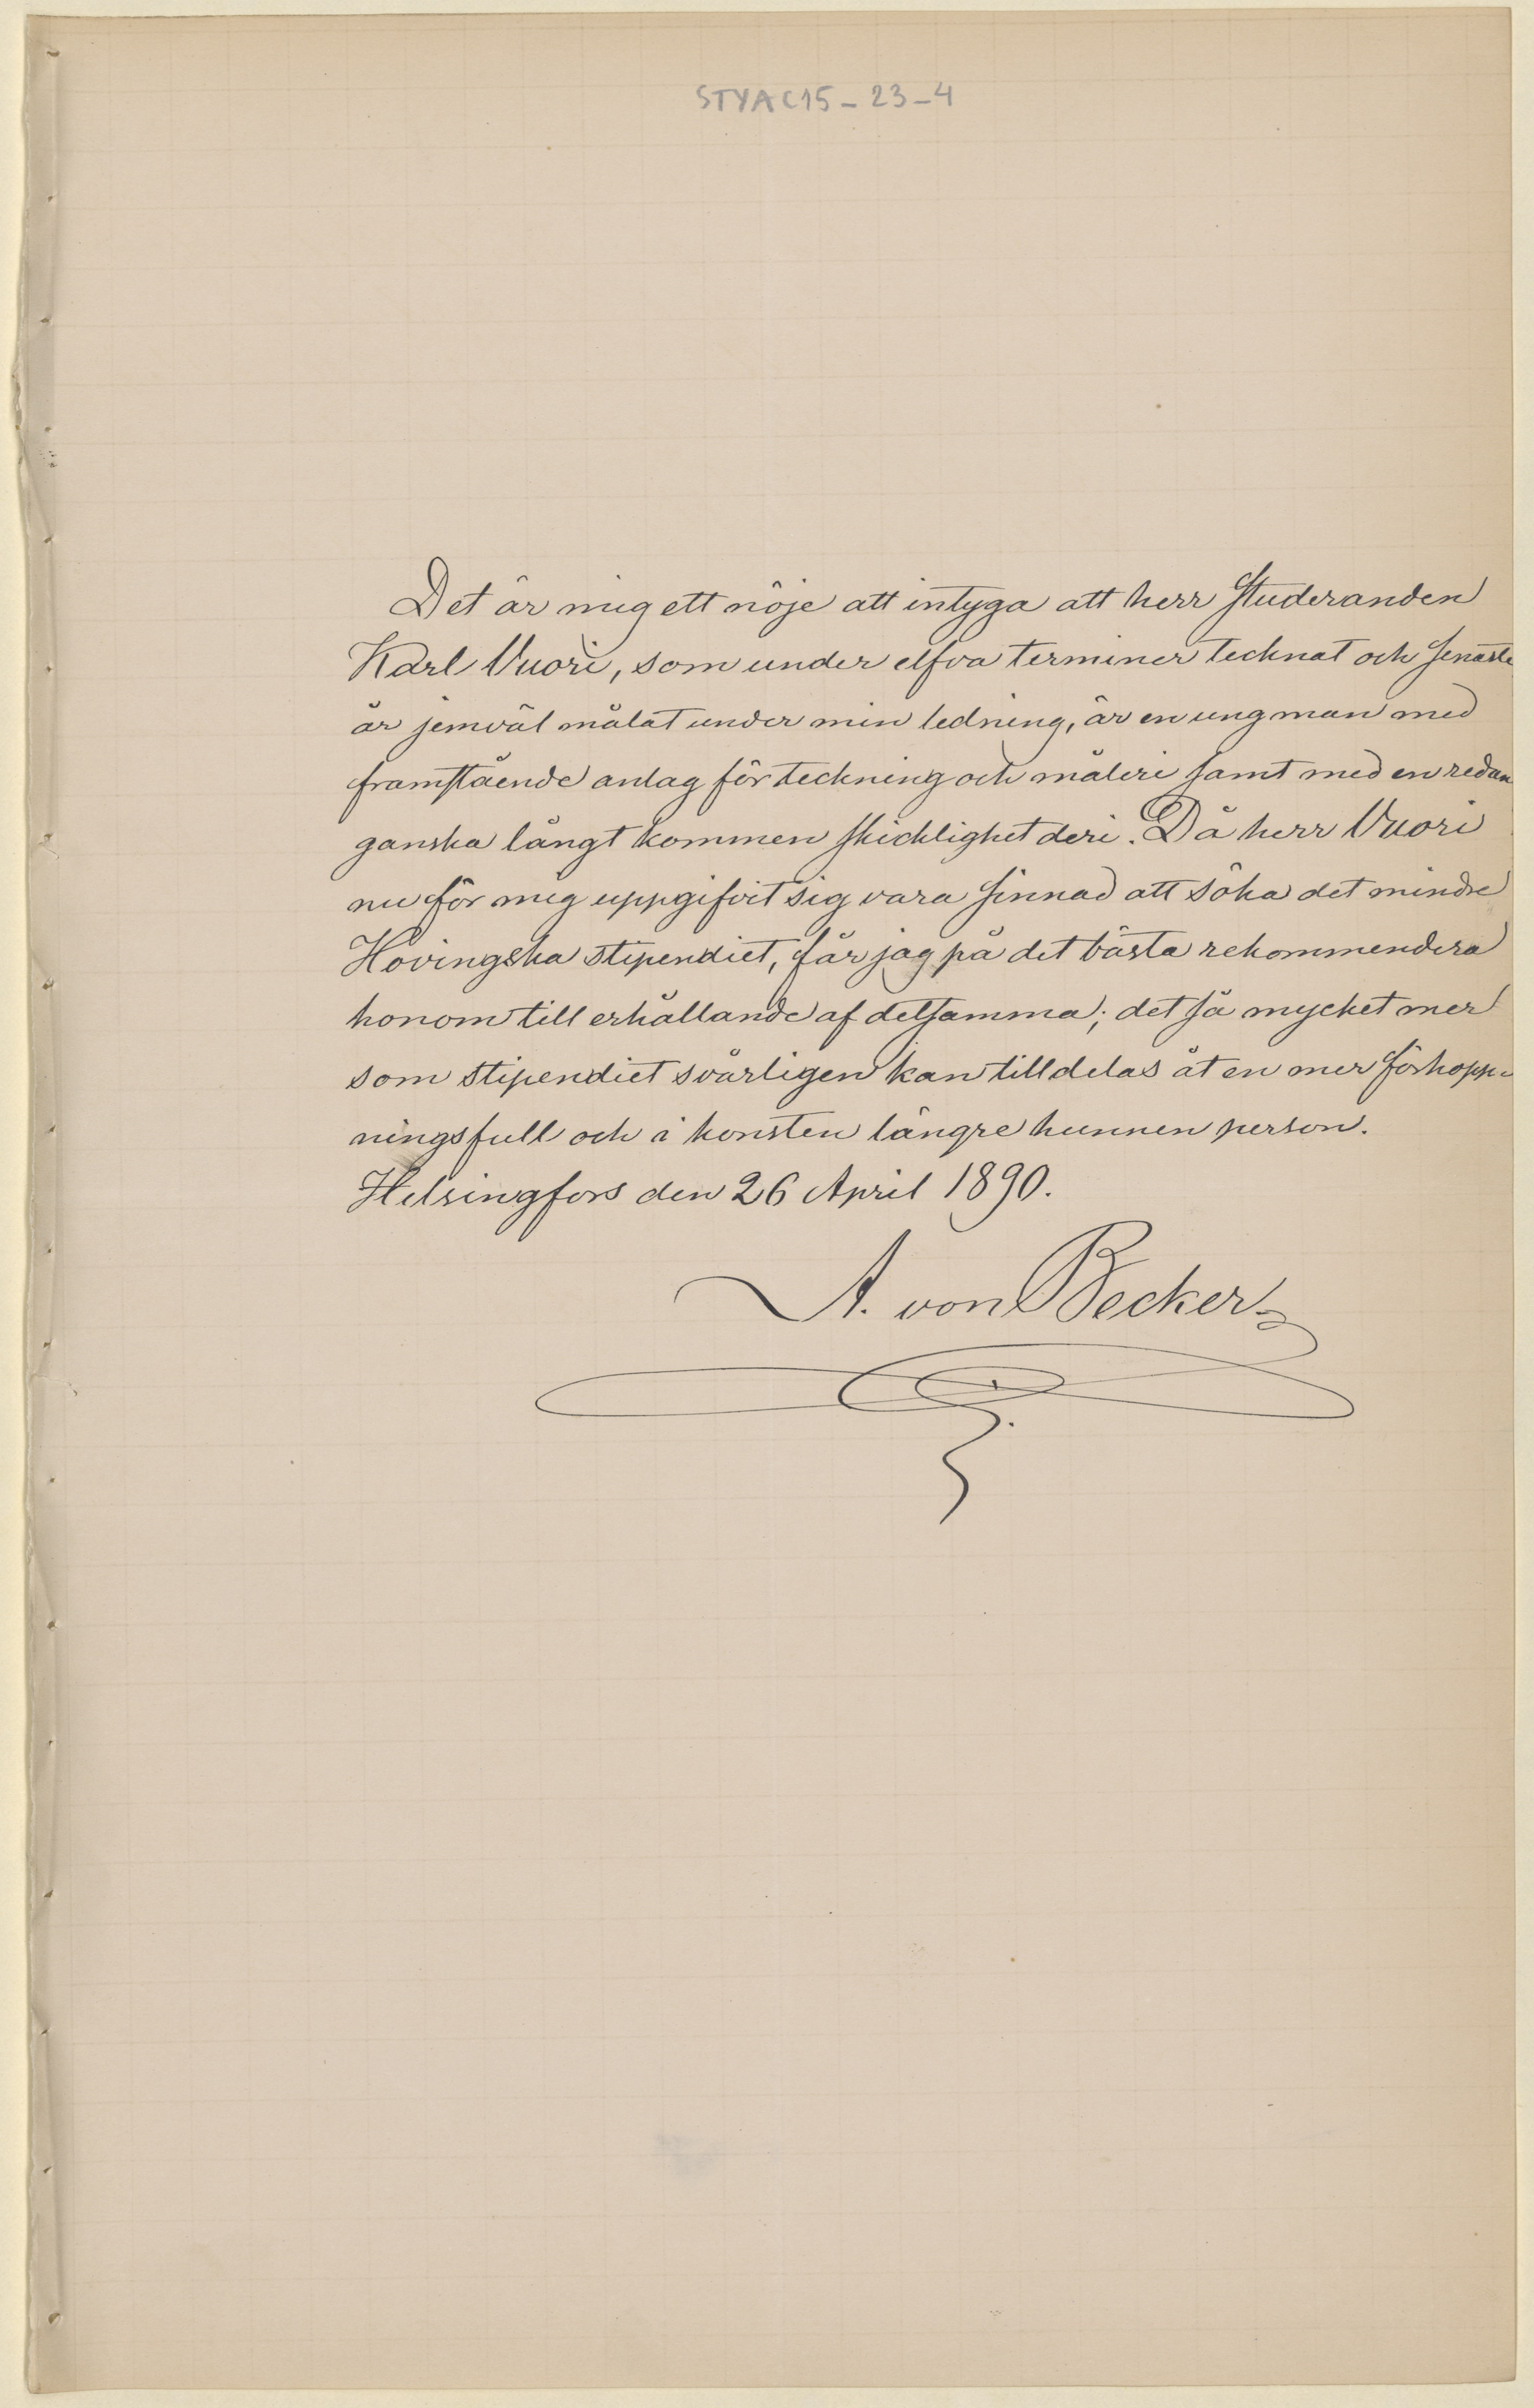 STYAC15-23-4
Det är mig ett nöje att intyga att herr Studeranden
Karl Vuori, som under elfva terminer tecknat och senaste
år jemväl målat under min ledning, är en ung man med
framstående anlag för teckning och måleri samt med en redan
ganska långt kommen skicklighet deri. Då herr Vuori
nu för mig uppgifvit sig vara sinnad att söka det mindre
Hovingska stipendiet, får jag på det bästa rekommendera
honom till erhållande af detsamma; det så mycket mer
som stipendiet svårligen kan tilldelas åt en mer förhopp-
ningsfull och i konsten längre hunnen person.
Helsingfors den 26 April 1890.
A. von Becker